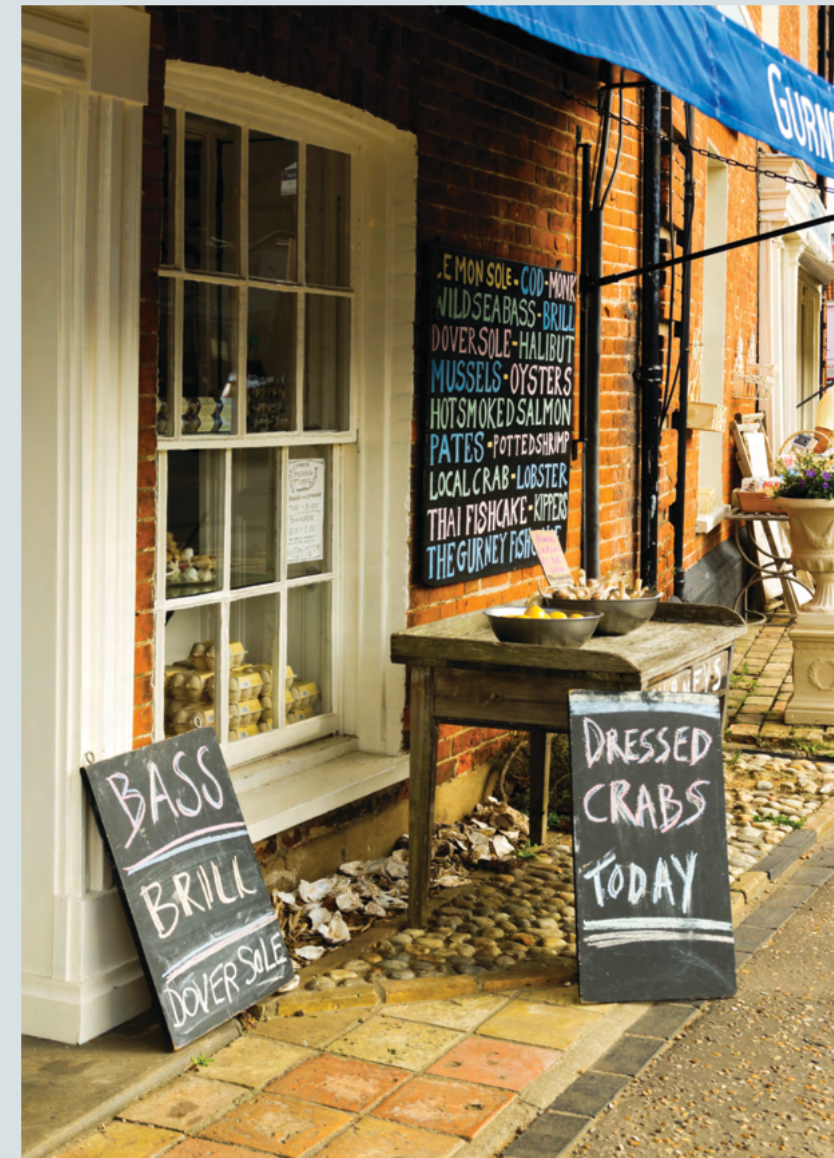 GURN
.EMON SOLE - COD - MONK
WILD SEA BASS - BRILL
DOVER SOLE - HALIBUT
MUSSELS - OYSTERS
HOT SMOKED SALMON
PATES - POTTED SHRIMP
LOCAL CRAB - LOBSTER
THAI FISHCAKE - KIPPERS
THE GURNEY FISH
BASS
BRILL
DOVER SOLE
DRESSED
CRABS
TODAY